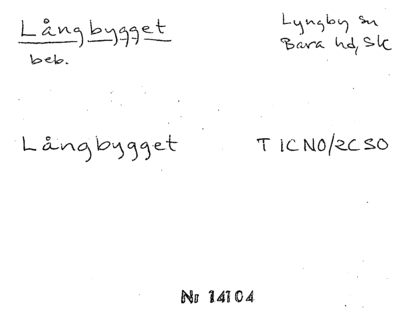 Långbygget
Lyngby sn
beb.
Bara hd, Sk
Långbygget
T 1C NO/2C SO
Nr 14104